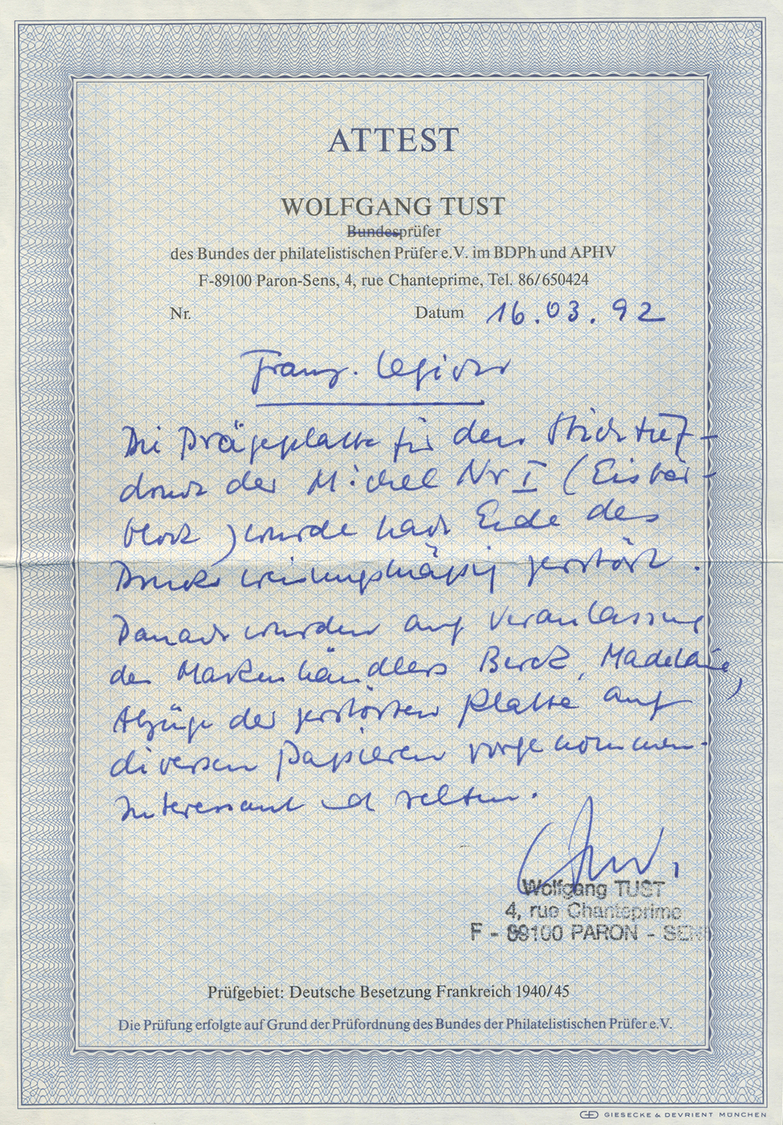 ATTEST
WOLFGANG TUST
Bundesprüfer
des Bundes der philatelistischen Prüfer e.V. im BDPh und APHV
F-89100 Paron-Sens, 4, rue Chanteprime, Tel. 86/650424
Nr. Datum 16.03.92
Franz. Legion
Die Prägeplatte für den Stichtief-
druck der Michel Nr I (Eisbär-
block) wurde nach Ende des
Drucks weisungsmäßig zerstört.
Danach wurden auf Veranlassung
des Markenhändlers Berck, Madelaine,
Abzüge der zerstörten Platte auf
diversen Papieren vorgenommen.
Interessant und selten.
Wolfgang TUST
4, rue Chanteprime
F - 89100 PARON - SENS
Prüfgebiet: Deutsche Besetzung Frankreich 1940/45
Die Prüfung erfolgte auf Grund der Prüfordnung des Bundes der Philatelistischen Prüfer e.V.
GIESECKE & DEVRIENT MÜNCHEN